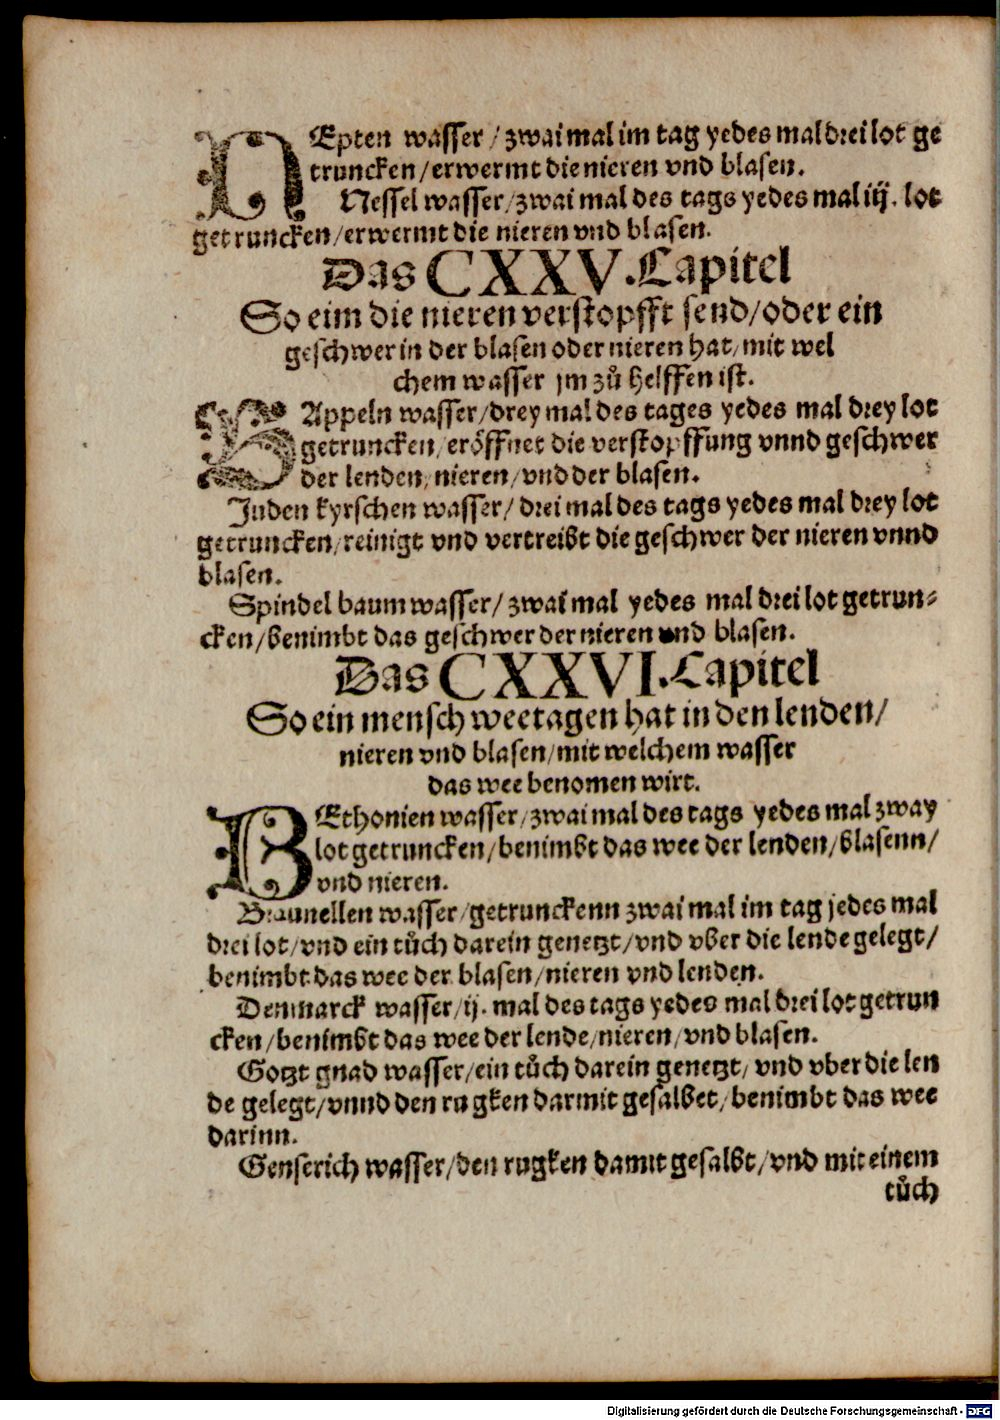 NEpten wasser / zwai mal im tag yedes mal drei lot ge
truncken / erwermt die nieren vnd blasen.
Nessel wasser / zwai mal des tags yedes mal iij. lot
getruncken / erwermt die nieren vnd blasen.
Das CXXV. Capitel
So eim die nieren verstopfft send / oder ein
geschwer in der blasen oder nieren hat / mit wel
chem wasser jm zů helffen ist.
PAppeln wasser / drey mal des tages yedes mal drey lot
getruncken / eröffnet die verstopffung vnnd geschwer
der lenden / nieren / vnd der blasen.
Juden kyrschen wasser / drei mal des tags yedes mal drey lot
getruncken / reinigt vnd vertreibt die geschwer der nieren vnnd
blasen.
Spindel baum wasser / zwai mal yedes mal drei lot getrun⸗
cken / benimbt das geschwer der nieren vnd blasen.
Das CXXVI. Capitel
So ein mensch weetagen hat in den lenden /
nieren vnd blasen / mit welchem wasser
das wee benomen wirt.
BEthonien wasser / zwai mal des tags yedes mal zway
lot getruncken / benimbt das wee der lenden / blasenn /
vnd nieren.
Braunellen wasser / getrunckenn zwai mal im tag jedes mal
drei lot / vnd ein tůch darein genetzt / vnd vber die lende gelegt /
benimbt das wee der blasen / nieren vnd lenden.
Denmarck wasser / ij. mal des tags yedes mal drei lot getrun
cken / benimbt das wee der lende / nieren / vnd blasen.
Gotzt gnad wasser / ein tůch darein genetzt / vnd vber die len
de gelegt / vnnd den rugken darmit gesalbet / benimbt das wee
darinn.
Genserich wasser / den rugken damit gesalbt / vnd mit einem
tůch
Digitalisierung gefördert durch die Deutsche Forschungsgemeinschaft - DFG